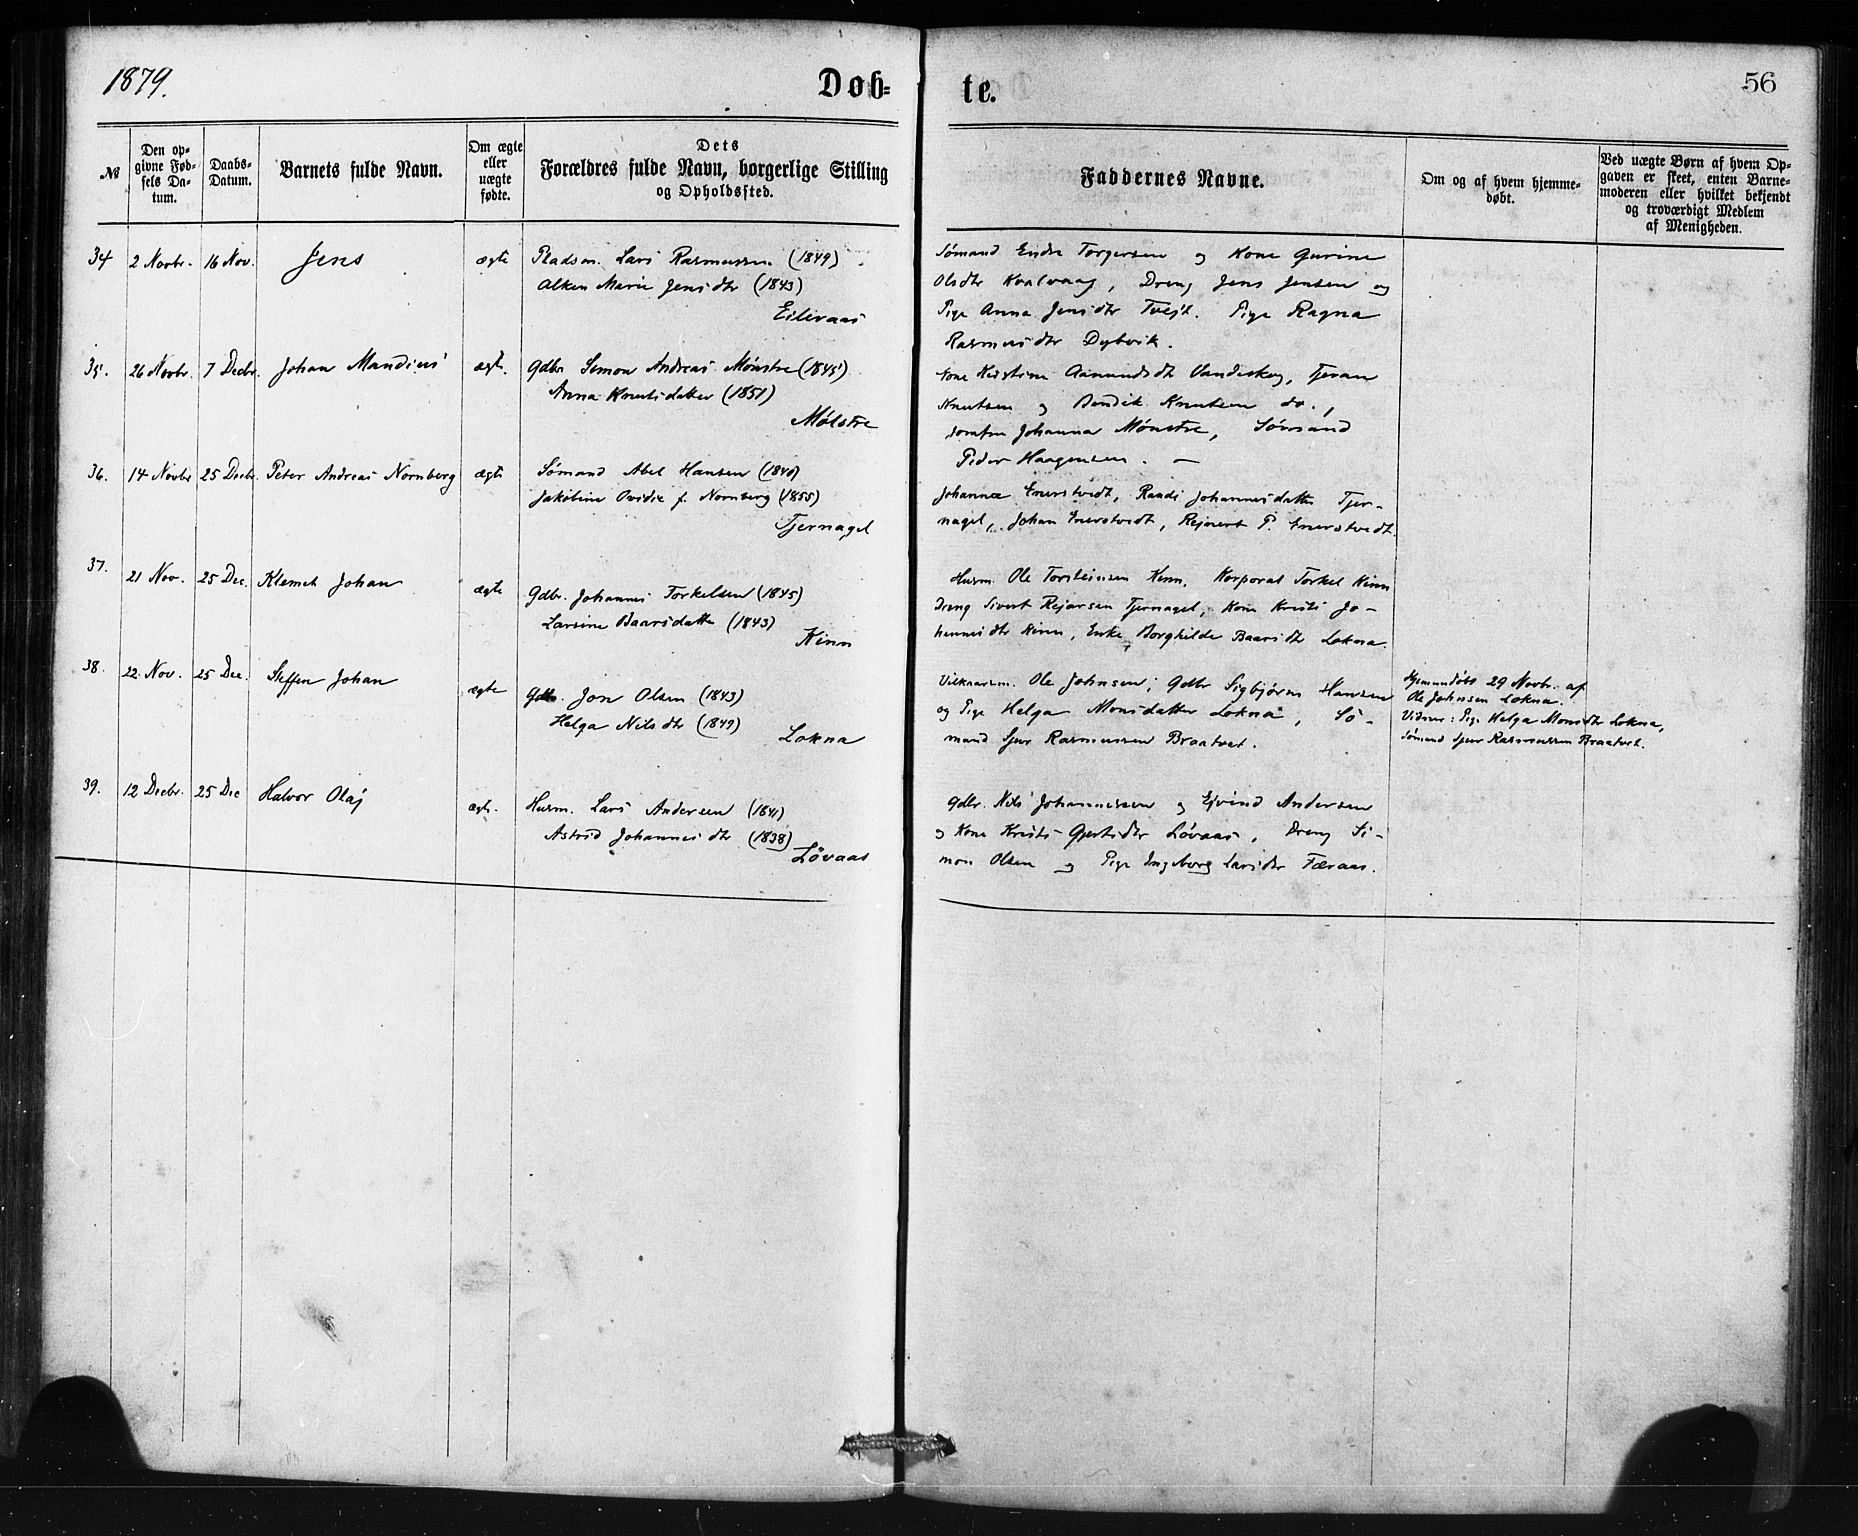 1879.
Døb-
te.
56
№
Den op-
givne Fød-
sels Da-
tum.
Daabs-
Datum.
Barnets fulde Navn.
Om ægte
eller
uægte
fødte.
Dets
Forældres fulde Navn, borgerlige Stilling
og Opholdssted.
Faddernes Navne.
Om og af hvem hjemme-
døbt.
Ved uægte Børn af hvem Op-
gaven er skeet, enten Barne-
moderen eller hvilket bekjendt
og troværdigt Medlem
af Menigheden.
34 2 Novbr. 16 Nov. Jens ægte Pladsm. Lars Rasmussen (1849)
Alken Marie Jensdtr (1843)
Eilivaas
Sømand Endre Torgersen og Kone Gurine
Olsdtr Kvalvaag, Dreng Jens Jensen og
Pige Anna Jensdtr Tvejt. Pige Ragna
Rasmusdtr Dybvik.
35. 26 Novbr. 7 Decbr. Johan Mandius ægte. Gdbr Simon Andreas Mønstre (1845)
Anna Knutsdatter (1851)
Mølstre
Kone Kristine Aamundsdt Vandaskog, Tjeran
Knutsen og Bendik Knutsen do.,
Jomfru Johanna Mønstre, Sømand
Peder Haagensen. —
36. 14 Novbr 25 Decbr. Peter Andreas Nornberg ægte Sømand Abel Hansen (1840)
Jakobine Ovidie f. Nornberg (1855)
Tjernagel
Johanna Enerstvedt, Randi Johannesdatter Tjer-
nagel, Johan Enerstvedt, Rejnert P. Enerstvedt.
37. 21 Nov. 25 Dec. Klemet Johan ægte Gdbr. Johannes Torkelsen (1845)
Larsine Baarsdatter (1843)
Kinn
Husm. Ole Torsteinsen Kinn. Korporal Torkel Kinn
Dreng Sivert Rejarsen Tjernagel, Kone Kristi Jo-
hannesdtr Kinn, Enke Borghilde Baarsdtr Lokna.
38. 22 Nov. 25 Dec. Steffen Johan ægte Gdbr. Jon Olsen (1843)
Helga Nilsdtr (1849)
Lokna
Vilkaarsm. Ole Johnsen, Gdbr Sigbjørn Hansen
og Pige Helga Monsdatter Lokna, Sø-
mand Sjur Rasmussen Braatvet.
Hjemmedøbt 29 Novbr. af
Ole Johnsen Lokna.
Vidner: Pige Helga Monsdtr Lokna,
Sømand Sjur Rasmussen Braatvet.
39. 12 Decbr. 25 Dec Halvor Olaj ægte. Husm. Lars Andersen (1841)
Astrid Johannesdtr (1838)
Løvaas
Gdbr. Nils Johannessen og Ejvind Andersen
og Kone Kristi Gjertsdtr Løvaas, Dreng Si-
mon Olsen og Pige Ingeborg Larsdtr Færaas.